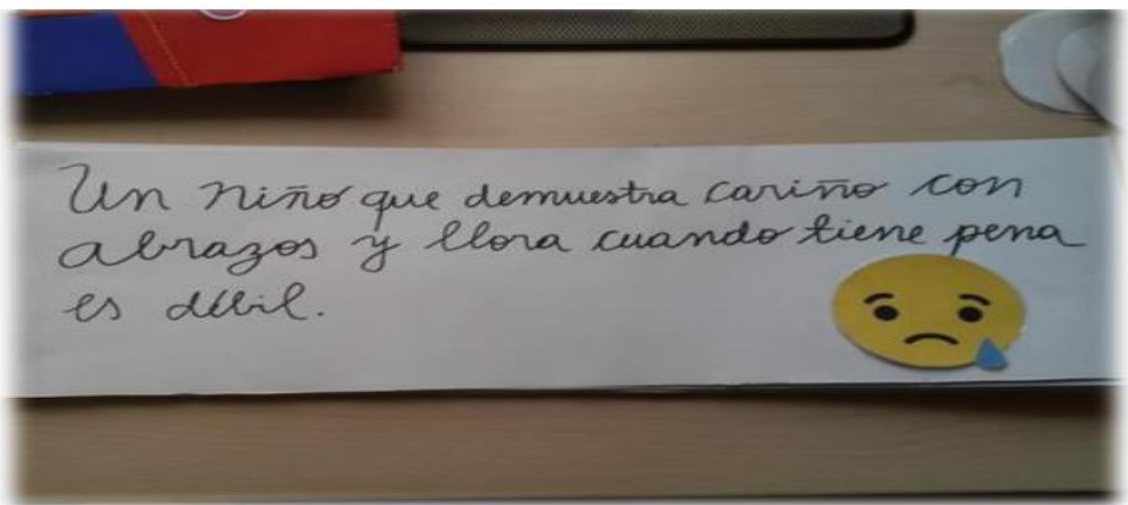 Un niño que demuestra cariño con
abrazos y llora cuando tiene pena
es débil.